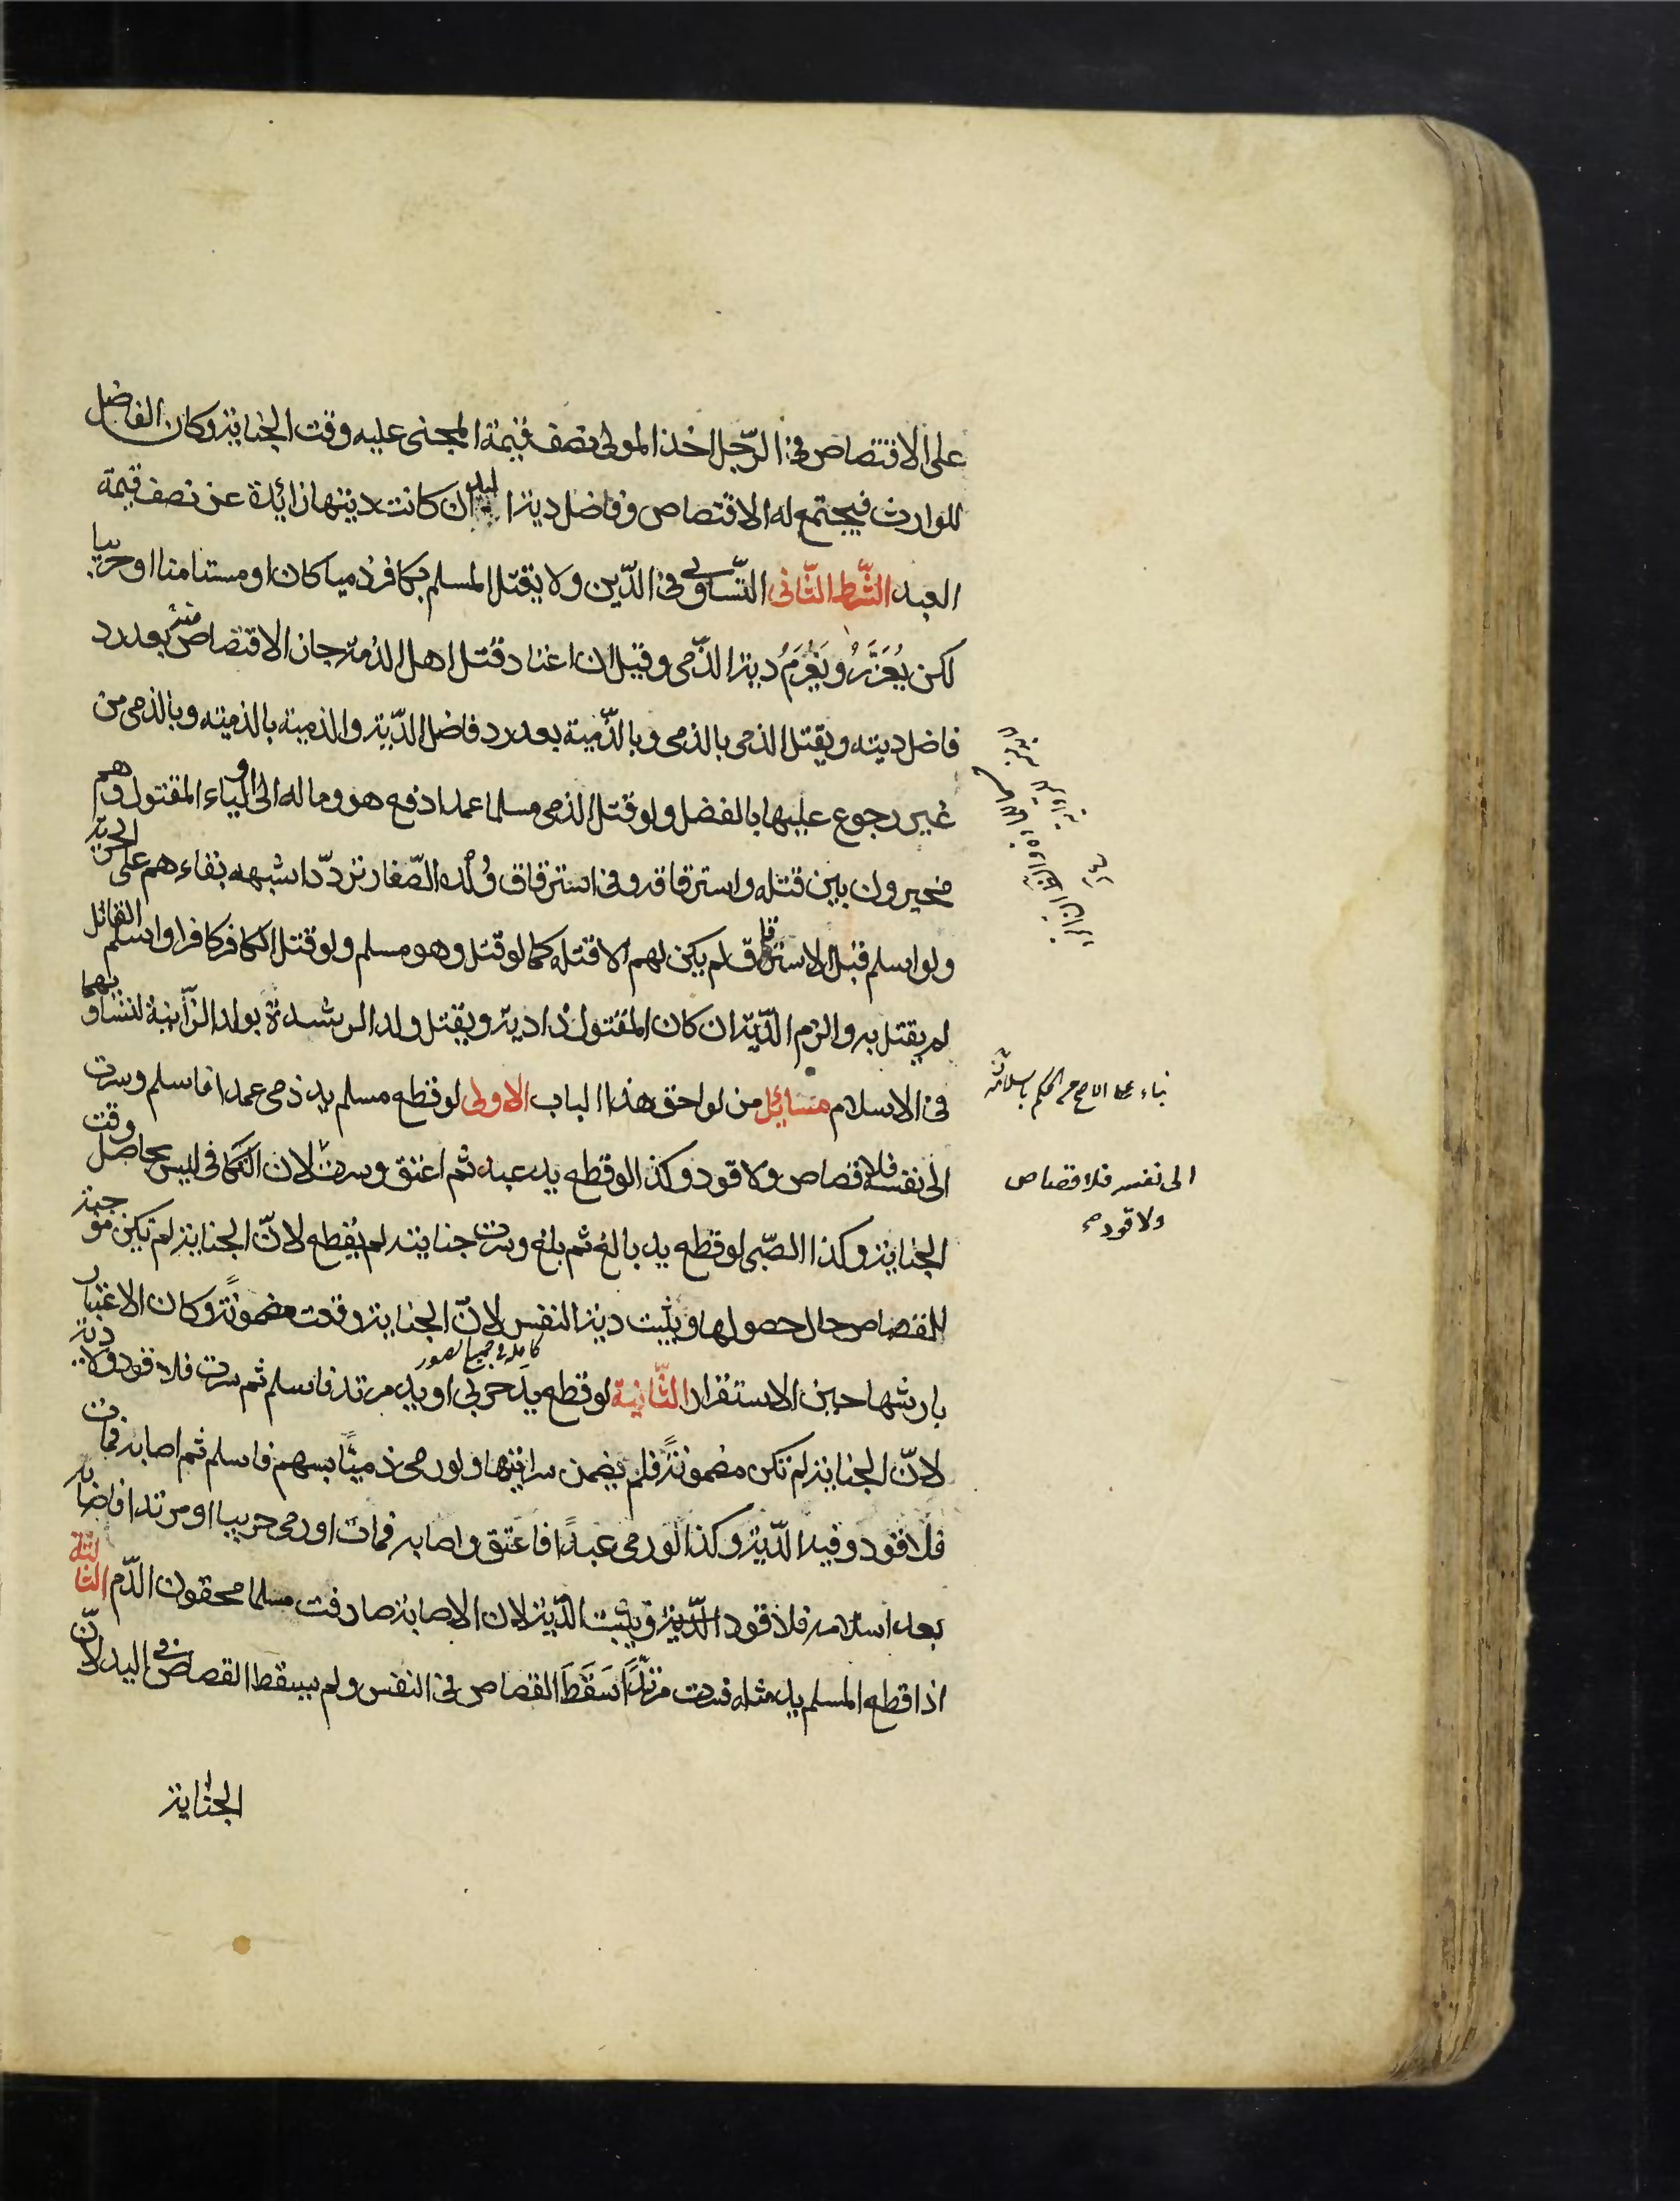 على الاقتصاص فى الرّجل اخذ المولى نصف قيمة المجنى عليه وقت الجناية وكان الفاضل
للوارث فيجتمع له الاقتصاص وفاضل دية اليد ان كانت ديتها زائدة عن نصف قيمة
العبد الشّرط الثّانى التّساوى فى الدّين ولا يقتل المسلم بكافر ذميا كان او مستامنا او حربيا
لكن يُعَزَّرُ ويَغْرَمُ دية الذّمى وقيل ان اعتاد قتل اهل الذمة جاز الاقتصاص منه بعد رد
فاضل ديته ويقتل الذمى بالذمى وبالذّمية بعد رد فاضل الدّية والذمية بالذمية وبالذمى من
غير رجوع عليها بالفضل ولو قتل الذمى مسلما عمدا دفع هو وماله الى اولياء المقتول وهم
مخيرون بين قتله واسترقاقه وفى استرقاق وُلْده الصّغار تردّد اشبهه بقاءهم على الحرية
ولو اسلم قبل الاسترقاق لم يكن لهم الا قتله كما لو قتل وهو مسلم ولو قتل الكافر كافرا واسلم القاتل
لم يقتل به والزم الدّية ان كان المقتول ذا دية ويقتل ولد الرشدة بولد الزّنية لتساويهما
فى الاسلام مسائل من لواحق هذا الباب الاولى لو قطع مسلم يد ذمى عمدا فاسلم وسرت
الى نفسه فلا قصاص ولا قود وكذا لو قطع يد عبد ثم اعتق وسرت لان التكافى ليس بحاصل وقت
الجناية وكذا الصّبى لو قطع يد بالغ ثم بلغ وسرت جنايته لم يُقطع لانّ الجناية لم تكن موجبة
للقصاص حال حصولها ويثبت دية النفس لانّ الجناية وقعت مضمونةً وكان الاعتبار
كاملة فى جميع الصور
بارشها حين الاستقرار الثّانية لو قطع يد حربى او يد مرتد فاسلم ثم سرت فلا قود ولا دية
لانّ الجناية لم تكن مضمونةً فلم يضمن سرايتها ولو رمى ذميّا بسهم فاسلم ثم اصابه فمات
فلا قود وفيه الدّية وكذا لو رمى عبدًا فاعتق واصابه فمات او رمى حربيا او مرتدا فاصابه
بعد اسلامه فلا قود الدّية ويثبت الدّية لان الاصابة صادفت مسلما محقون الدّم الثالثة
اذا قطع المسلم يد مثله فسرت مرتدًّا سَقَطَ القصاص فى النفس ولم يسقط القصاص فى اليد لانّ
الجناية
الى نفسه فلا قصاص
ولا قود